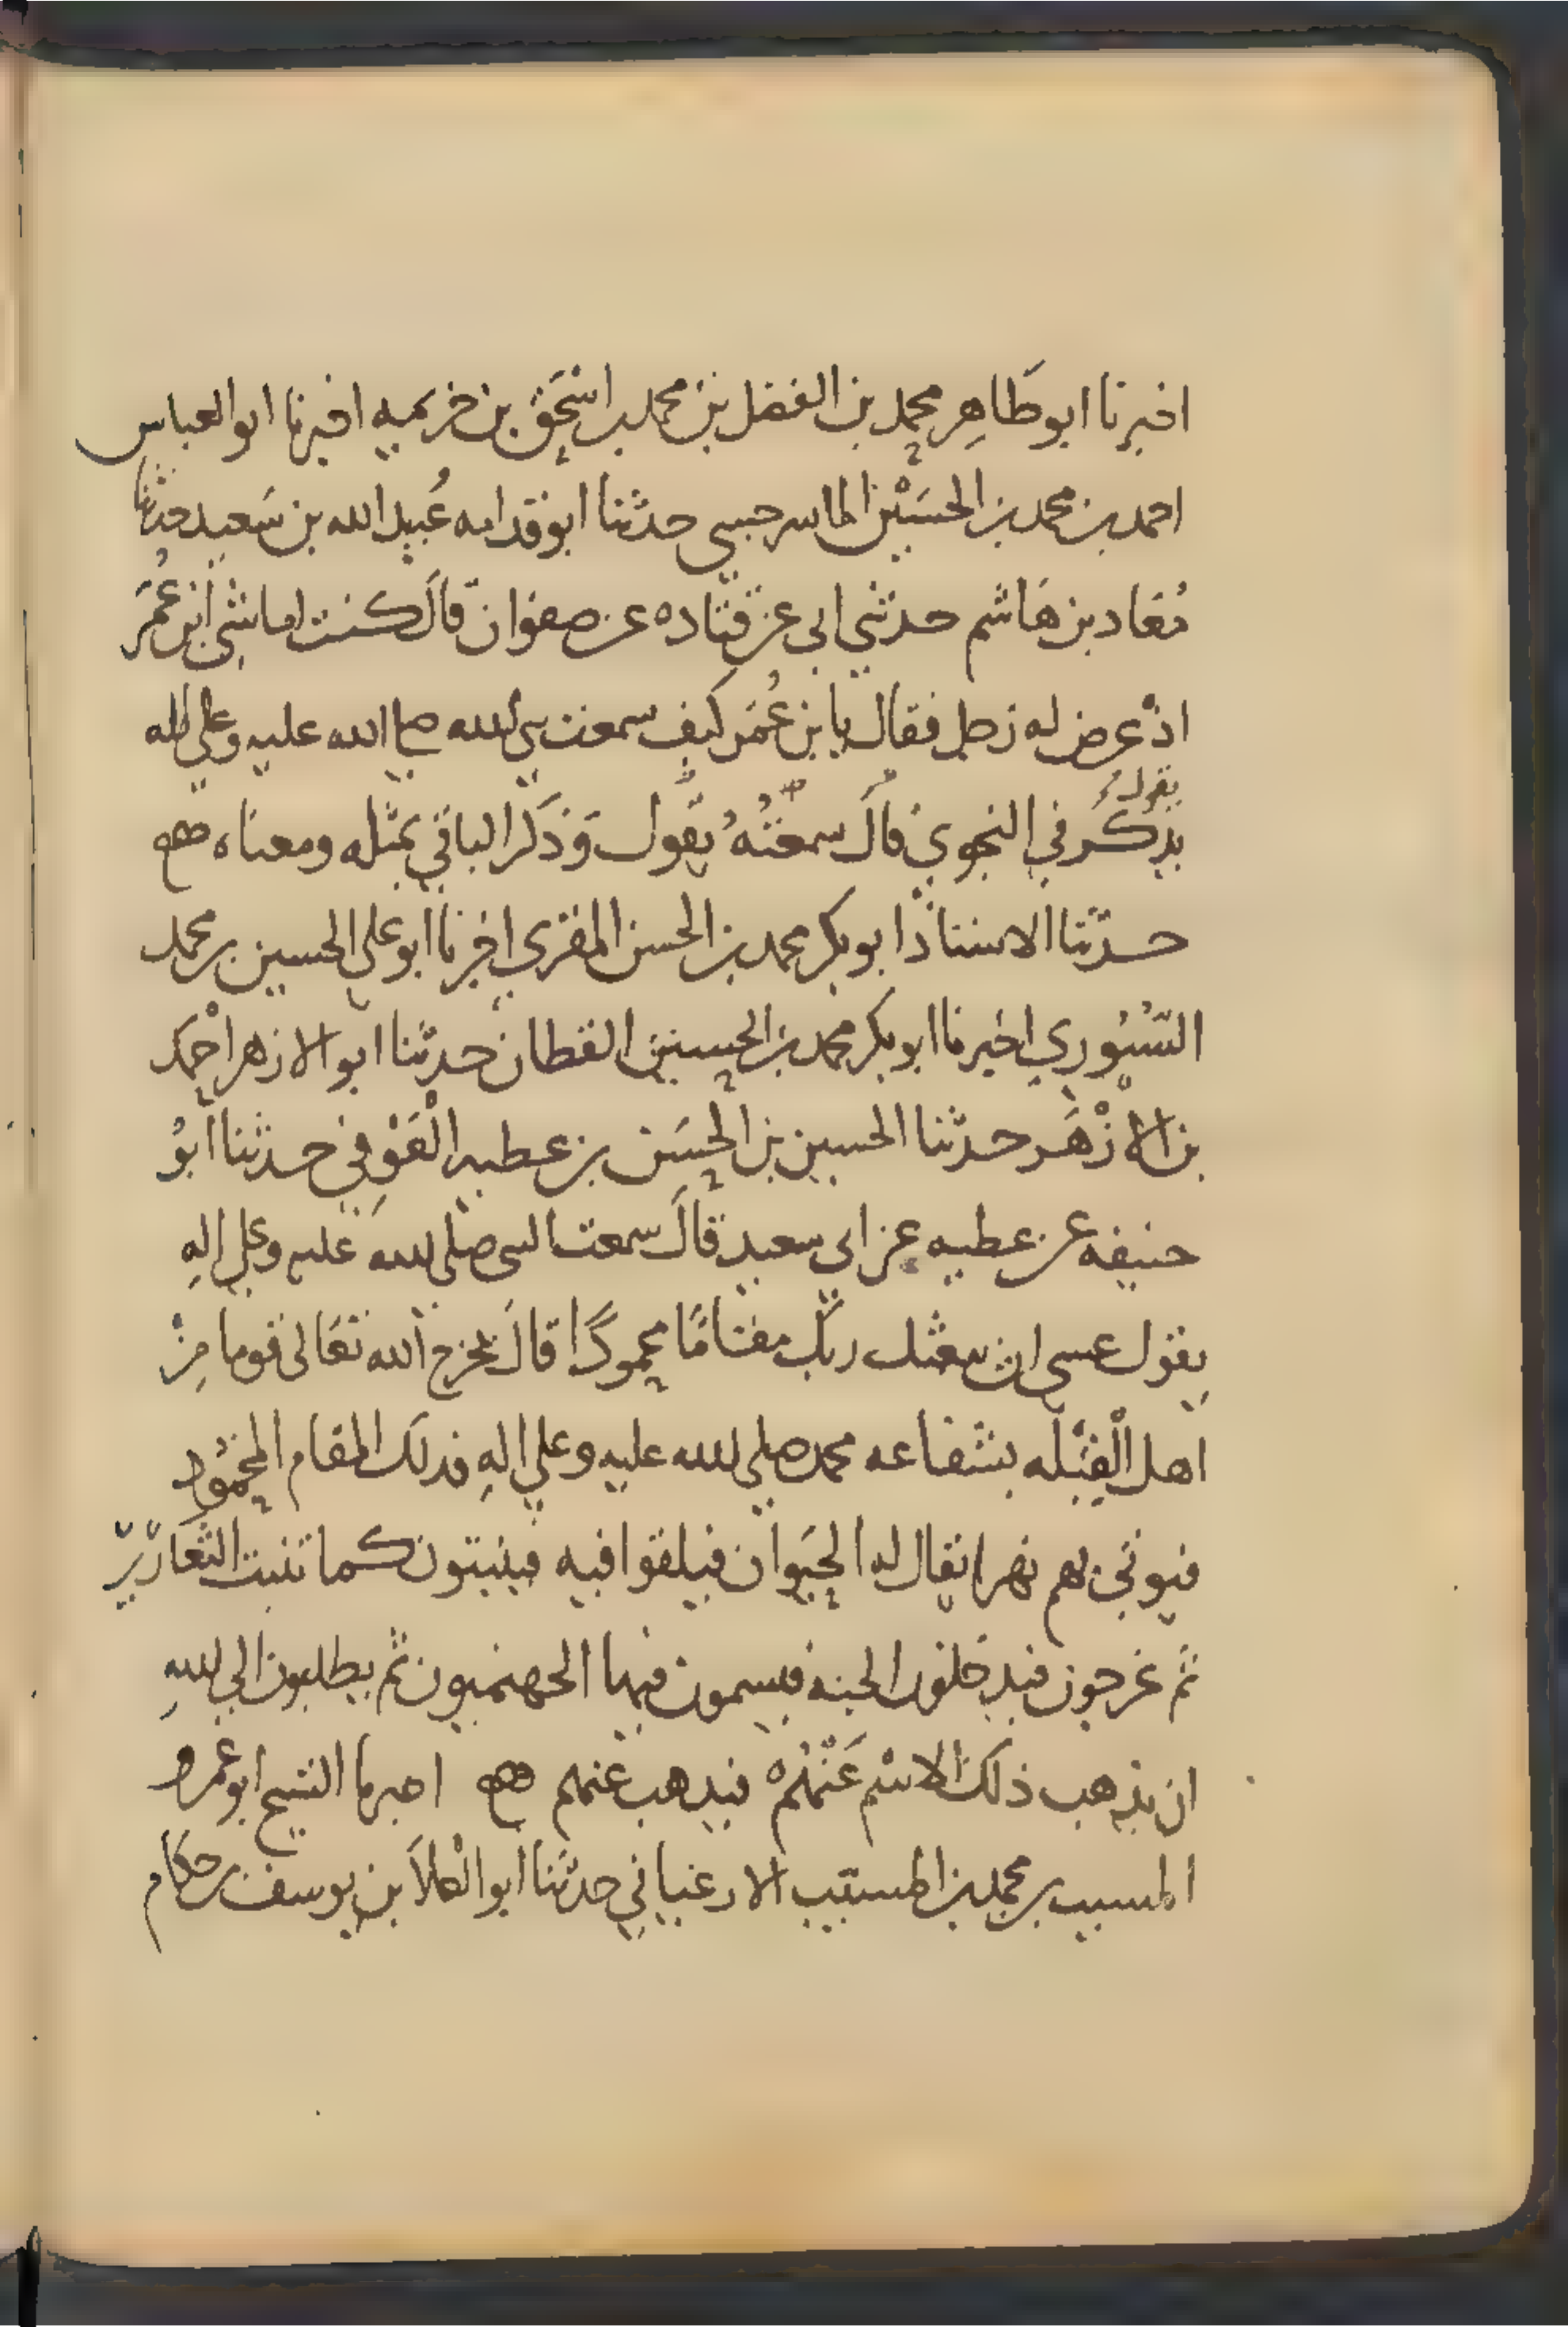 اخبرنا ابو طَاهِر محمد بن الفضل بن محمد بن اسْحَق بن خزيميه اخبرنا ابو العباس
احمد بن محمد بن الحسَيْن الماسرجسي حدثنا ابو قدامه عُبيد الله بن سَعيد حدثنا
مُعَاد بن هَاشم حدثني ابي عن قتاده عن صفوان قالَ كنت اماشي ابن عُمَر
اذْ عرض له رَجل فقال يا بن عُمَر كيف سمعت نبي الله صلى الله عليه وعلى اله
يقول
يذكُر في النجوي قالَ سمعْتُهُ يَقول وَذكَر الباقي بمثله ومعناه
حدثنا الاستاذ ابو بكر محمد بن الحسن المقري اخبرنا ابو علي الحسين بن محمد
السّيُوري اخبرنا ابو بكر محمد بن الحسين القطان حدثنا ابو الازهر احْمَد
بن الازْهَر حدثنا الحسين بن الحسَن بن عطيه الْعَوْفِي حدثنا ابوُ
حنيفه عن عطيه عن ابي سعيد قالَ سمعت النبي صلى الله عليه وعلى الهِ
يقول عسى ان يبعثك ربّك مقامًا محمودًا قالَ يخرج الله تعَالى قوما مِنْ
اهل الْقِبْلَه بشفاعه محمد صلى الله عليه وعلى الهِ فدلك المقام المحْمُود
فيوتى بهم نهرا يقال له الحيَوان فيلقوا فيه فينبتون كما تنبت الثعارير
ثم يخرجون فيدخلون الجنه فيسمون فيها الجهنميون ثم يطلبون الي اللهِ
ان يذهب ذلكَ الاسْم عَنْهُمْ فيدهب عنهم اخبرنا الشيخ ابو عمرو
المسيب بن محمد بن المسيّب الارغياني حدثنا ابو العلاَ بن يوسف بن حكام